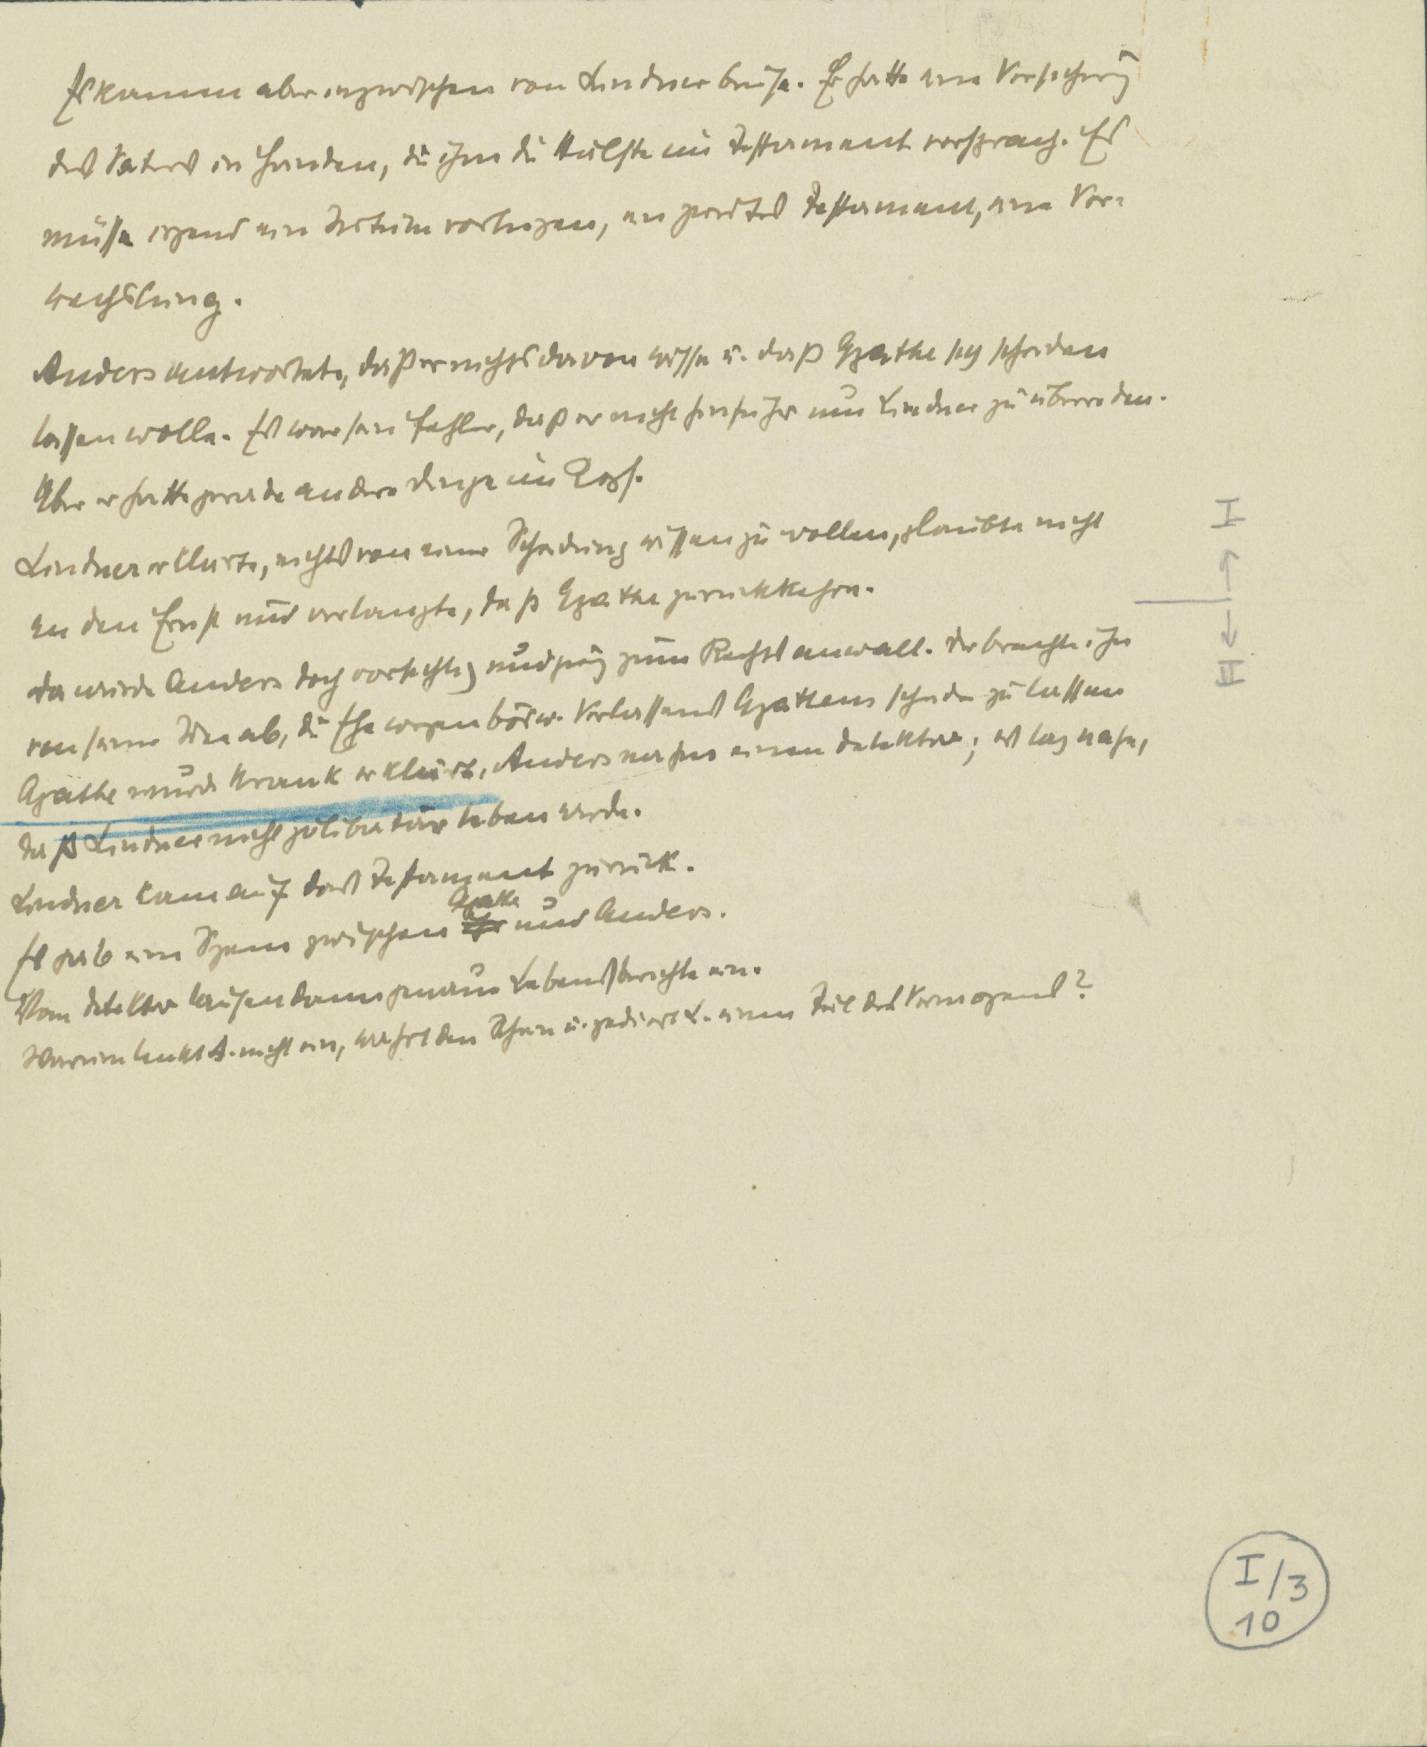 Es kamen aber inzwischen von Lindner Briefe. Er hatte eine Versicherung
des Vaters in Händen, die ihm die Hälfte im Testament versprach. Es
müsse irgend ein Irrtum vorliegen, ein zweites Testament, eine Ver-
wechslung.
Anders antwortete, daß er nichts davon wisse u. daß Agathe sich scheiden
lassen wolle. Es war sein Fehler, daß er nicht hinfuhr um Lindner zu überreden.
Aber er hatte gerade andere Dinge im Kopf.
Lindner erklärte, nichts von einer Scheidung wissen zu wollen, glaubte nicht
an den Ernst und verlangte, daß Agathe zurückkehre.
Da wurde Anders doch vorsichtig und ging zum Rechtsanwalt. Der brachte ihn
von seiner Idee ab, die Ehe wegen bösw. Verlassens Agathens scheiden zu lassen
Agathe wurde krank erklärt. Anders nahm einen Detektiv; es lag nahe,
daß Lindner nicht zölibatär leben werde.
Lindner kam auf das Testament zurück.
Agathe
Es gab eine Szene zwischen und Anders.
Vom Detektiv laufen dann genaue Lebensberichte ein.
Warum lenkt A. nicht ein, wahrt den Schein u. zediert L. einen Teil des Vermögens?
I
II
I/3
10